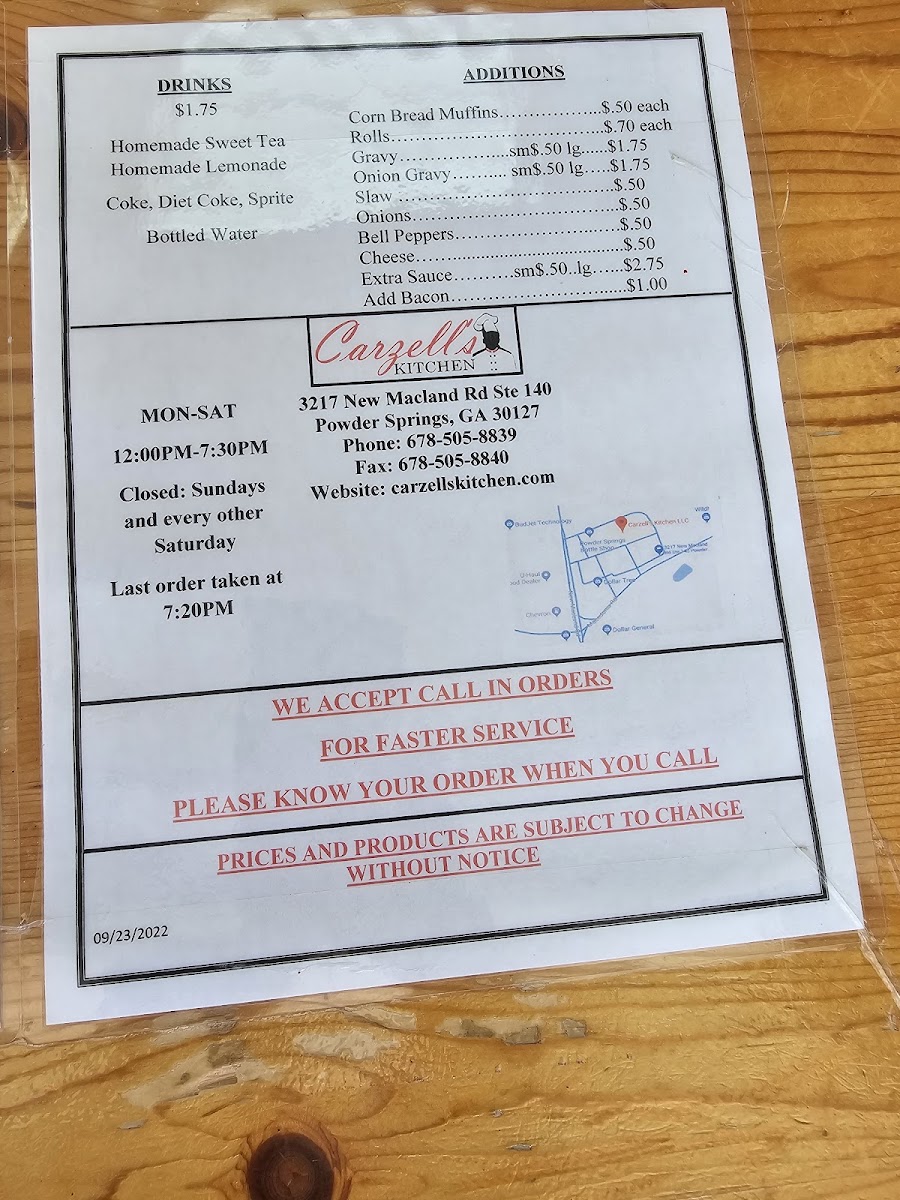 DRINKS
$1.75
Homemade Sweet Tea
Homemade Lemonade
Coke, Diet Coke, Sprite
Bottled Water
ADDITIONS
Corn Bread Muffins................$.50 each
Rolls.................................$.70 each
Gravy..................sm$.50 lg......$1.75
Onion Gravy.......... sm$.50 lg.....$1.75
Slaw ..................................$.50
Onions.................................$.50
Bell Peppers..........................$.50
Cheese.................................$.50
Extra Sauce..........sm$.50..lg......$2.75
Add Bacon............................$1.00
Carzell's
KITCHEN
MON-SAT
12:00PM-7:30PM
Closed: Sundays
and every other
Saturday
Last order taken at
7:20PM
3217 New Macland Rd Ste 140
Powder Springs, GA 30127
Phone: 678-505-8839
Fax: 678-505-8840
Website: carzellskitchen.com
BudJet Technology
Carzell's Kitchen LLC
Powder Springs
Bottle Shop
3217 New Macland
Dollar Tree
Chevron
Dollar General
WE ACCEPT CALL IN ORDERS
FOR FASTER SERVICE
PLEASE KNOW YOUR ORDER WHEN YOU CALL
PRICES AND PRODUCTS ARE SUBJECT TO CHANGE
WITHOUT NOTICE
09/23/2022